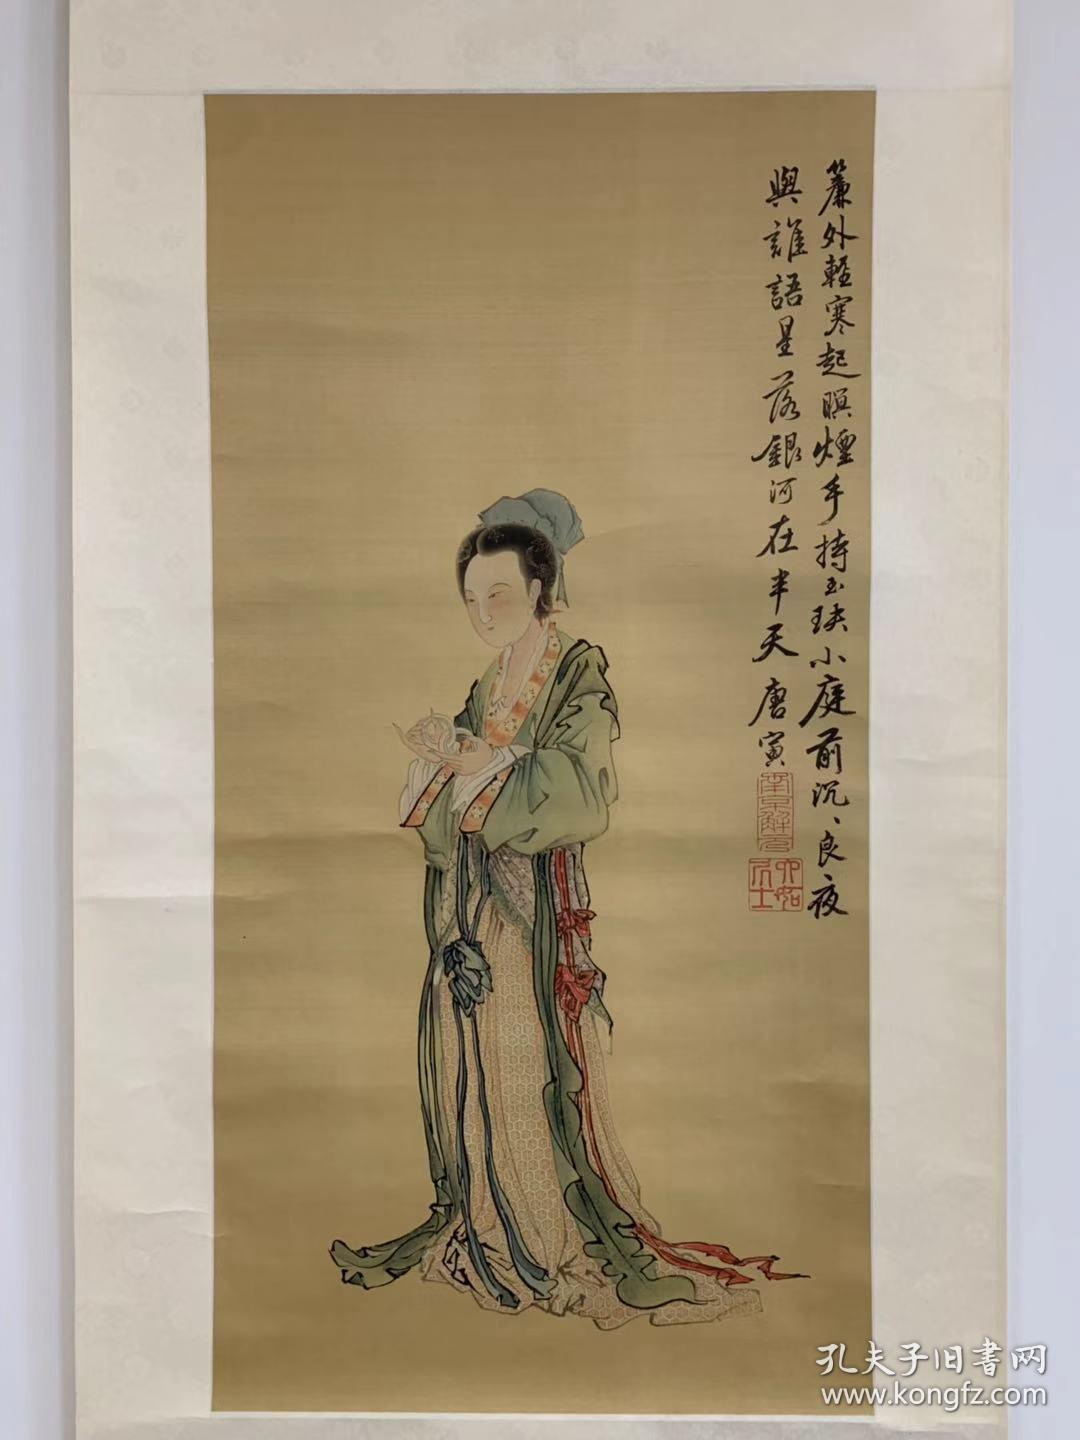 簾外輕寒起暝煙手持玉玦小庭前沉、良夜
與誰語星落銀河在半天唐寅
南京解元
六如居士
孔夫子旧書网
www.kongfz.com